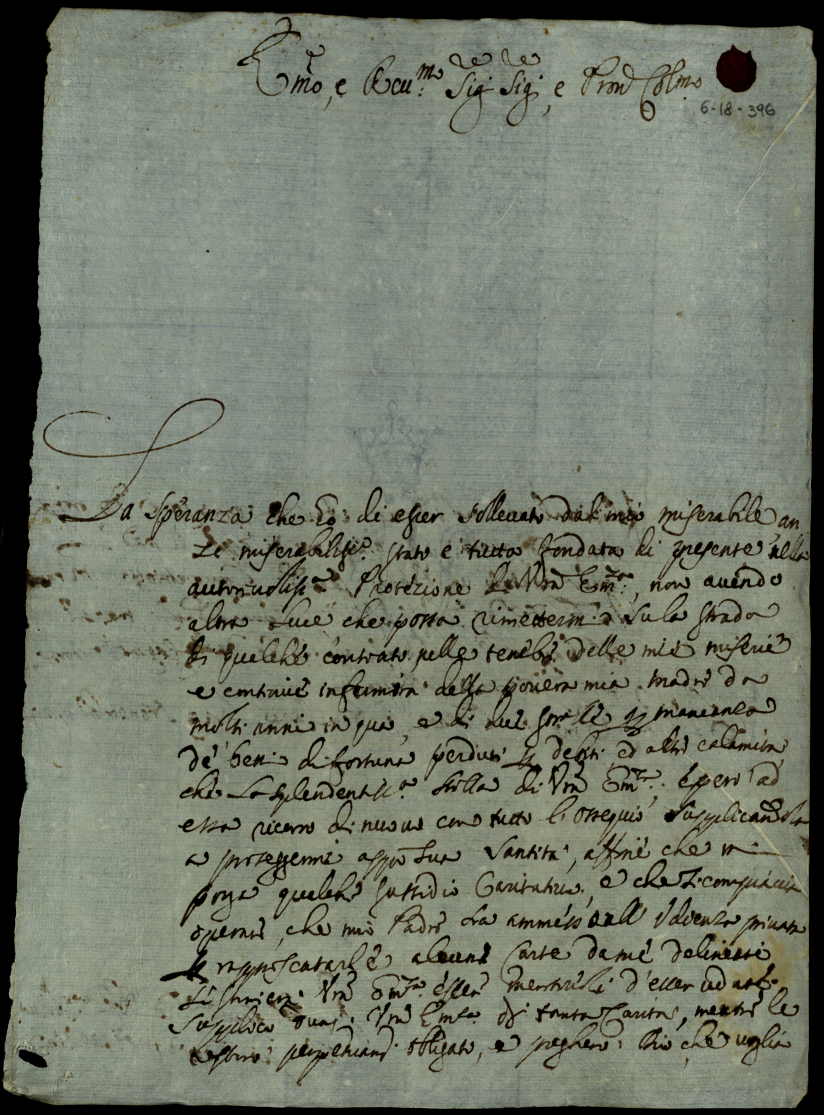 Em̃o, e Reu.mo Sig.re Sig.re, e Pron Col.mo
6-18-396
La Speranza che ò di esser solleuato dal mio miserabile an
zi miserabiliss.o stato è tutta fondata di presente nella
autoreuoliss.a Protezione di Vrã Em.za, non auendo
altra Luce che possa rimettermi sù la strada
di qualche contrato nelle tenebre delle mie miserie
e continue infermità della pouera mia Madre da
molti anni in quà, e di due sorelle p mancanza
de' beni di fortuna perduti p debiti, ed altre calamità
che La splendentiss.a stella di Vrã Em.za. E però ad
essa ricorro di nuouo con tutto l'ossequio Supplicandola
a proteggermi appo Sua Santità, affine che mi
porga qualche sussidio Caritatiuo, e che si compiaccia
operare, che mio Padre sia ammesso all' Vdienza priuata
p rappresentarle alcune Carte da me delineate
Vrã Em.za esser d'esser
Supplico Vrã Em.za di tanta Carità, mentre le
resterò perpetuam.e obligato, e pregherò Dio, che voglia